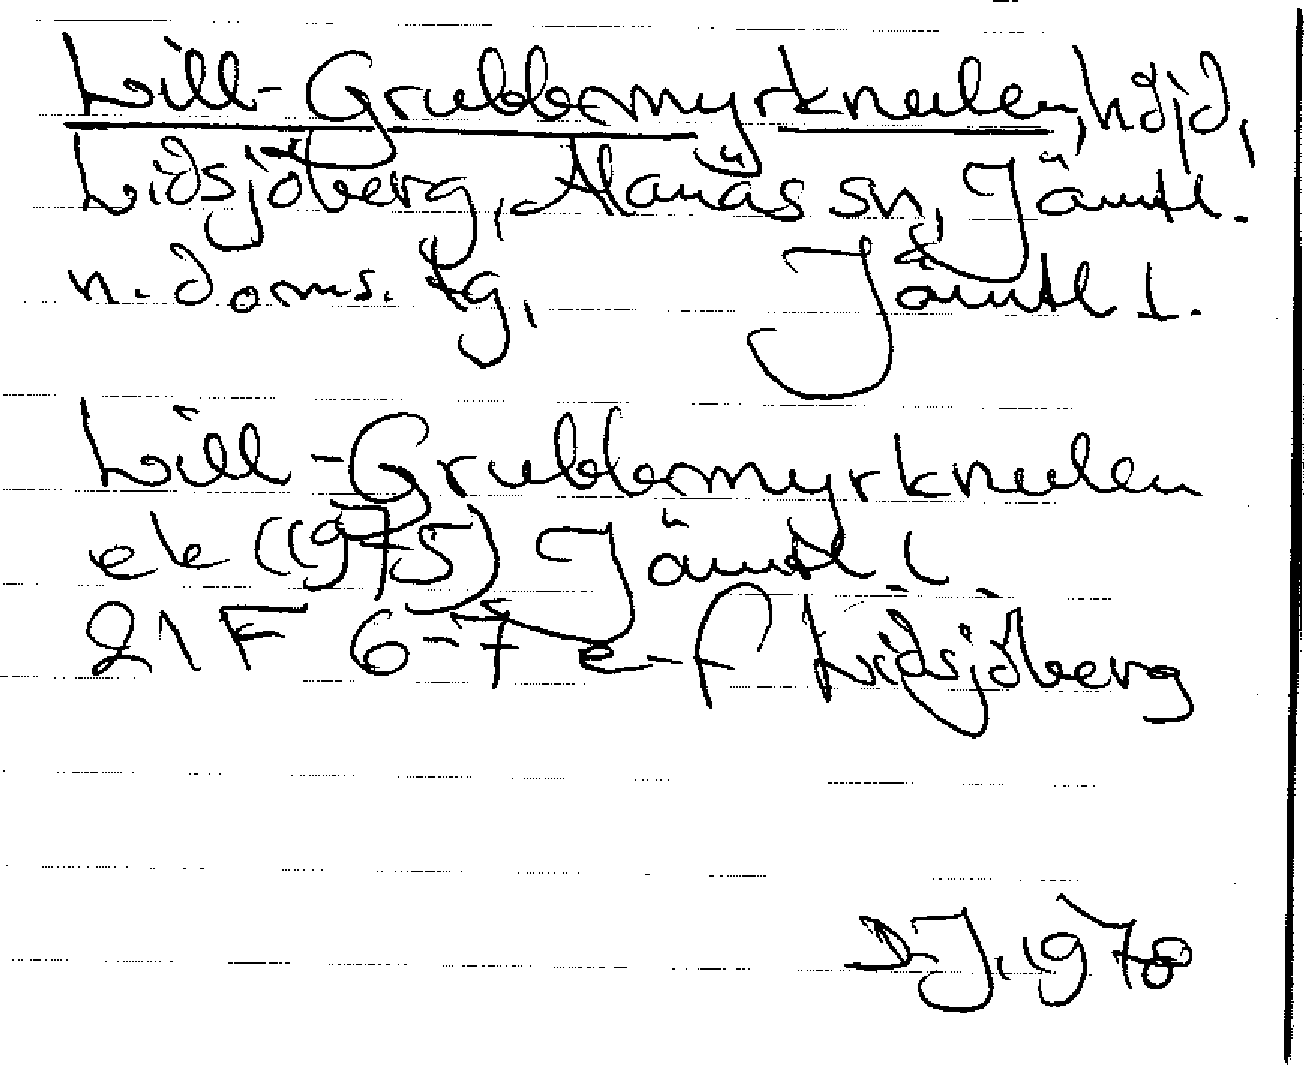 Lill-Grubbmyrknulen, höjd,
Lidsjöberg, Alanäs sn, Jämtl.
n. doms. tg, Jämtl l.
Lill-Grubbmyrknulen
ek (1975) Jämtl l
21 F 6-7 e-f Lidsjöberg
D.J. 1978